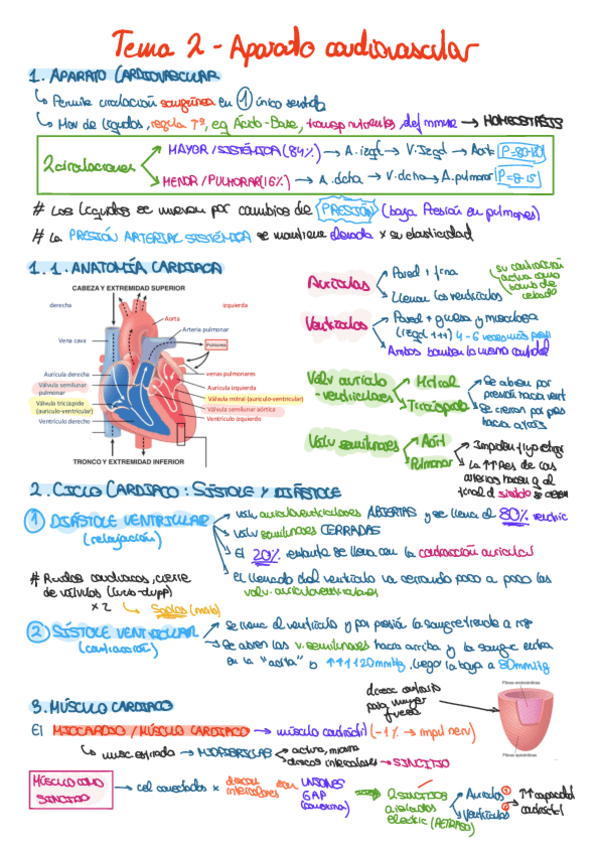 Tema 2 - Aparato cardiovascular
1. APARATO CARDIOVASCULAR
↳ Permite circulación sanguínea en ① único sentido
↳ Mov de líquidos, regula Tª, eq Ácido-Base, transp nutrientes, def inmune → HOMEOSTASIS
2 circulaciones
MAYOR / SISTÉMICA (84%) → A. izqd → V. Izqd → Aorta
MENOR / PULMONAR (16%) → A. dcha → V. dcha → A. pulmonar P=8-15
# Los líquidos se mueven por cambios de PRESIÓN (baja Presión en pulmones)
# La PRESIÓN ARTERIAL SISTÉMICA se mantiene elevada x su elasticidad
1.1. ANATOMÍA CARDIACA
CABEZA Y EXTREMIDAD SUPERIOR
derecha
izquierda
Aorta
Arteria pulmonar
Vena cava
Pulmones
Aurícula derecha
venas pulmonares
Válvula semilunar pulmonar
Aurícula izquierda
Válvula tricúspide (aurículo-ventricular)
Válvula mitral (aurículo-ventricular)
Válvula semilunar aórtica
Ventrículo derecho
Ventrículo izquierdo
TRONCO Y EXTREMIDAD INFERIOR
Aurículas
Pared + fina
Llenan los ventrículos
su contracción actúa como bomba de cebado
Ventrículos
Pared + gruesa y musculosa
(izqd +++) 4-6 veces más
Ambos bomban la misma cantidad
Valv aurículo-ventriculares
Mitral
Tricúspide
Se abren por presión hacia vent
Se cierran por pres hacia atrás
Valv semilunares
Aórt
Pulmonar
Impiden flujo
La ↑↑ Pres de las arterias hacen q al final d sístole se cierren
2. CICLO CARDIACO: SÍSTOLE Y DIÁSTOLE
① DIÁSTOLE VENTRICULAR (relajación)
valv auriculoventriculares ABIERTAS y se llena el 80% ventríc
valv semilunares CERRADAS
El 20% restante se llena con la contracción auricular
El llenado del ventrículo va cerrando poco a poco las valv. auriculoventriculares
# Ruidos cardiacos, cierre de válvulas (lub-dupp)
x2 ↳ Soplos (malo)
② SÍSTOLE VENTRICULAR (contracción)
se llena el ventrículo y por presión la sangre tiende a
Se abren las v. semilunares hacia arriba y la sangre entra
en la "aorta" a ↑↑↑120mmHg, luego la baja a 80mmHg
3. MÚSCULO CARDIACO
El MIOCARDIO / MÚSCULO CARDIACO → músculo contráctil (-1% → impul nerv)
↳ musc estriado → MIOFIBRILLAS → actina, miosina
discos intercalares → SINCITIO
para mayor fuerza
MÚSCULO COMO SINCITIO → cel conectadas x discos intercalares con UNIONES GAP
2 SINCITIOS aislados electric (RETRASO)
Aurículas ①
Ventrículos ②
↑↑ capacidad contráctil